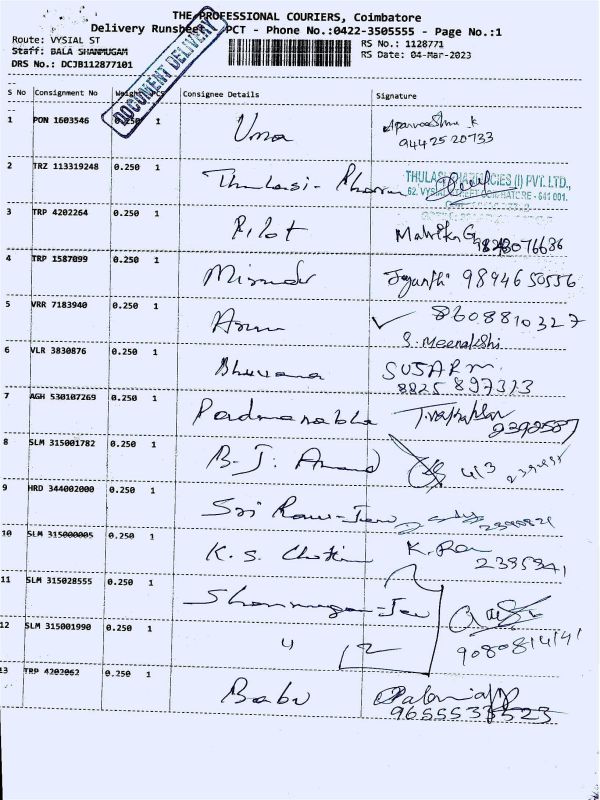 THE PROFESSIONAL COURIERS, Coimbatore
Delivery Runsheet PCT - Phone No.:0422-3505555 - Page No.:1
Route: VYSIAL ST
RS No.: 1128771
Staff: BALA SHANMUGAM
RS Date: 04-Mar-2023
DRS No.: DCJB112877101
DOCUMENT DELIVERY
S No Consignment No Weight PCS Consignee Details Signature
1 PON 1603546 1 Uma
9442520733
2 TRZ 113319248 0.250 1 Thulasi-Pharm
THULASI PHARMACIES (I) PVT. LTD.,
62, VYSIAL STREET COIMBATORE - 641 001.
3 TRP 4202264 0.250 1 Pilot
4 TRP 1587099 0.250 1 Jayanthi 9894650556
5 VRR 7183940 0.250 1 Arun 8608810327
S. Meenakshi
6 VLR 3830876 0.250 1 Bhuvana
8825 897313
7 AGH 530107269 0.250 1 Padmanabha
2398587
8 SLM 315001782 0.250 1 B. J. Anand
9 HRD 344002000 0.250 1 Sri Ram-Jew
10 SLM 315000005 0.250 1 K. S. K. Ram
2395341
11 SLM 315028555 0.250 1 Shanmuga-Jew
12 SLM 315001990 0.250 1 " 2
9080814141
13 TRP 4202062 0.250 1 Babu Palaniapp